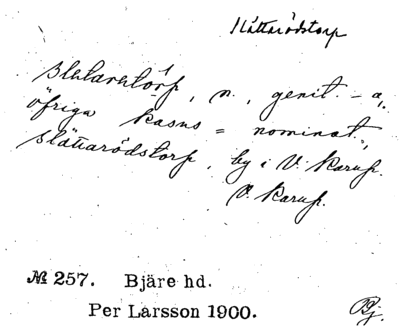 Slättarödstorp
Slataratörp, n., genit. -a,
öfriga kasus = nominat.,
Slättarödstorp, by i V. Karup.
V. Karup.
№ 257. Bjäre hd.
Per Larsson 1900.
Bj.